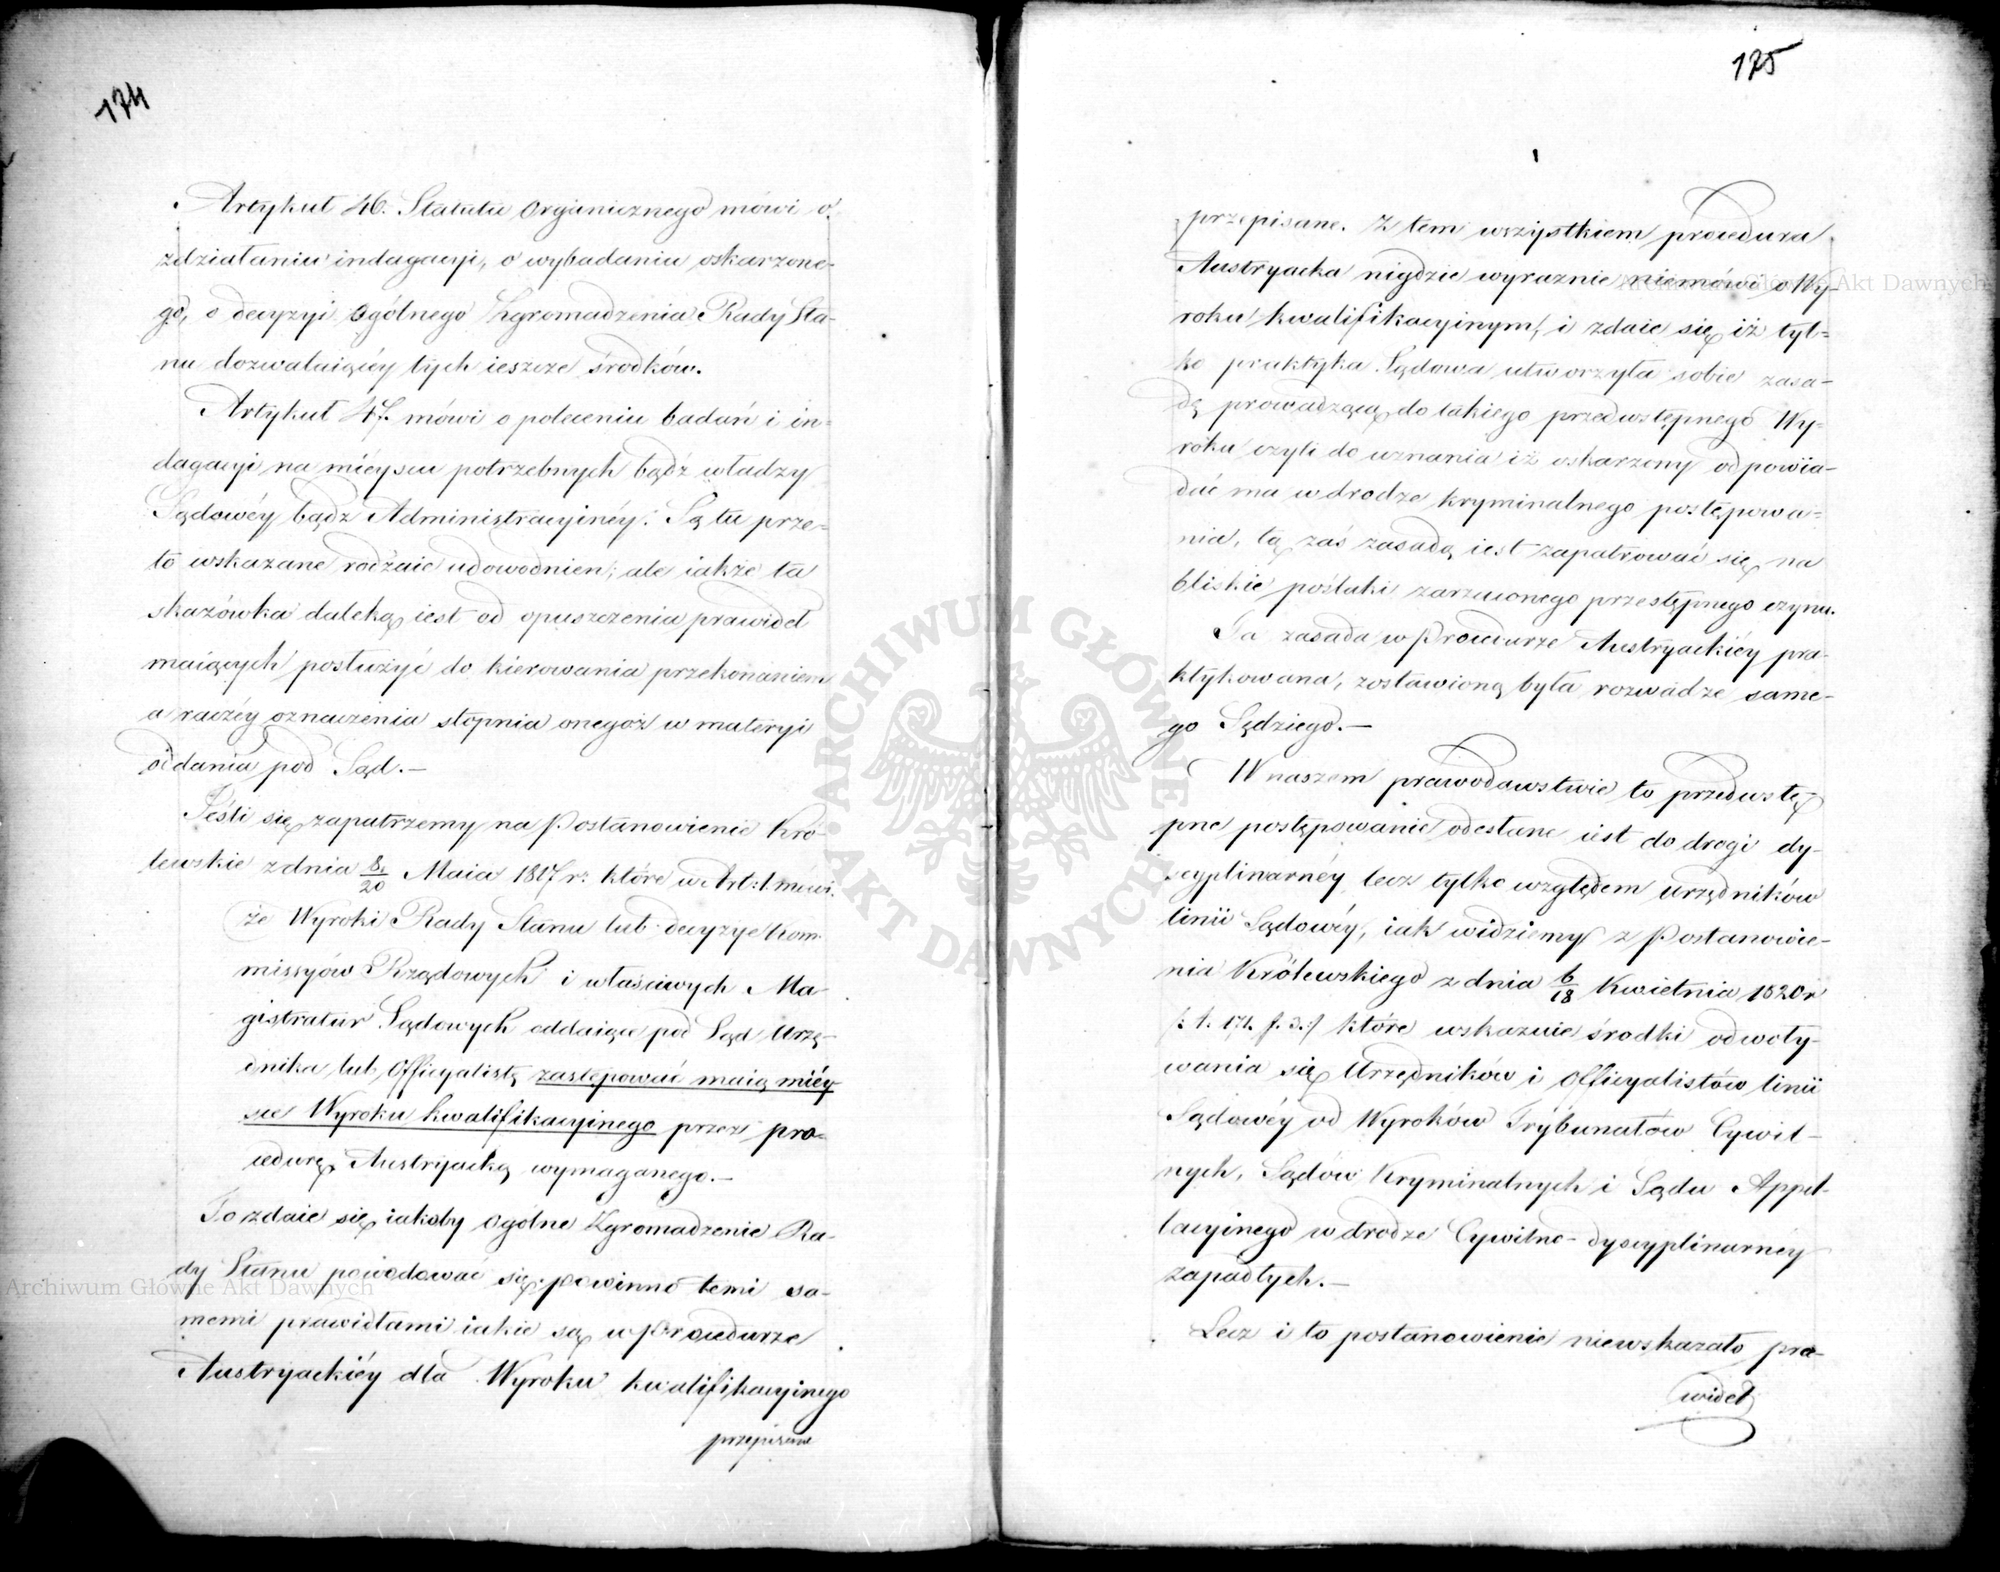 174
Artykuł 46. Statutu Organicznego mówi o
zdziałaniu indagacyi, o wybadaniu oskarzone-
go, o decyzyi Ogólnego Zgromadzenia Rady Sta-
nu dozwalaiącéy tych ieszcze środków.
Artykuł 47. mówi o poleceniu badań i in-
dagacyi na mieyscu potrzebnych bądź władzy
Sądowéy bądz Administracyinéy. Są tu prze-
to wskazane rodzaie udowodnien; ale iakże ta
skazówka daleką iest od opuszczenia prawideł
maiących posłużyć do kierowania przekonaniem
a raczéy oznaczenia stopnia onegoż w materyi
oddania pod Sąd.—
Jeśli się zapatrzemy na Postanowienie Kró-
lewskie z dnia 8/20 Maia 1817 r: które w Art: 1 mówi.
że Wyroki Rady Stanu lub decyzye Kom-
missyów Rządowych i właściwych Ma-
gistratur Sądowych oddaiące pod Sąd Urzę-
dnika lub Officyalistę zastępować maią miéy-
sce Wyroku kwalifikacyinego przez pro-
cedurę Austryacką wymaganego.—
To zdaie się iakoby Ogólne Zgromadzenie Ra-
dy Stanu powodować się powinno temi sa-
memi prawidłami iakie są w Procedurze
Austryackiéy dla Wyroku kwalifikacyinego
przepisane
175
przepisane. Z tem wszystkiem procedura
Austryacka nigdzie wyraznie niemówi o Wy-
roku kwalifikacyinym, i zdaie się iż tyl-
ko praktyka Sądowa utworzyła sobie zasa-
dę prowadzącą do takiego przedwstępnego Wy-
roku czyli do uznania iż oskarzony odpowia-
dać ma w drodze kryminalnego postępowa-
nia, tą zaś zasadą iest zapatrować się na
bliskie poślaki zarzuconego przestępnego czynu.
Ta zasada w Procedurze Austryackiéy pra-
ktykowana, zostawioną była rozwadze same-
go Sędziego.—
W naszem prawodawstwie to przedwstę-
pne postępowanie odesłane iest do drogi dy-
scyplinarnéy lecz tylko względem urzędników
linii Sądowéy, iak widziemy z Postanowie-
nia Królewskiego z dnia 6/18 Kwietnia 1820 r
które wskazuie środki odwoły-
wania się Urzędników i Officyalistów linii
Sądowéy od Wyroków Trybunałów Cywil-
nych, Sądów Kryminalnych i Sądu Appel-
lacyinego w drodze Cywilno-dyscyplinarnéy
zapadłych.—
Lecz i to postanowienie niewskazało pra-
wideł
Archiwum Główne Akt Dawnych
Archiwum Główne Akt Dawnych
ARCHIWUM GŁÓWNE AKT DAWNYCH